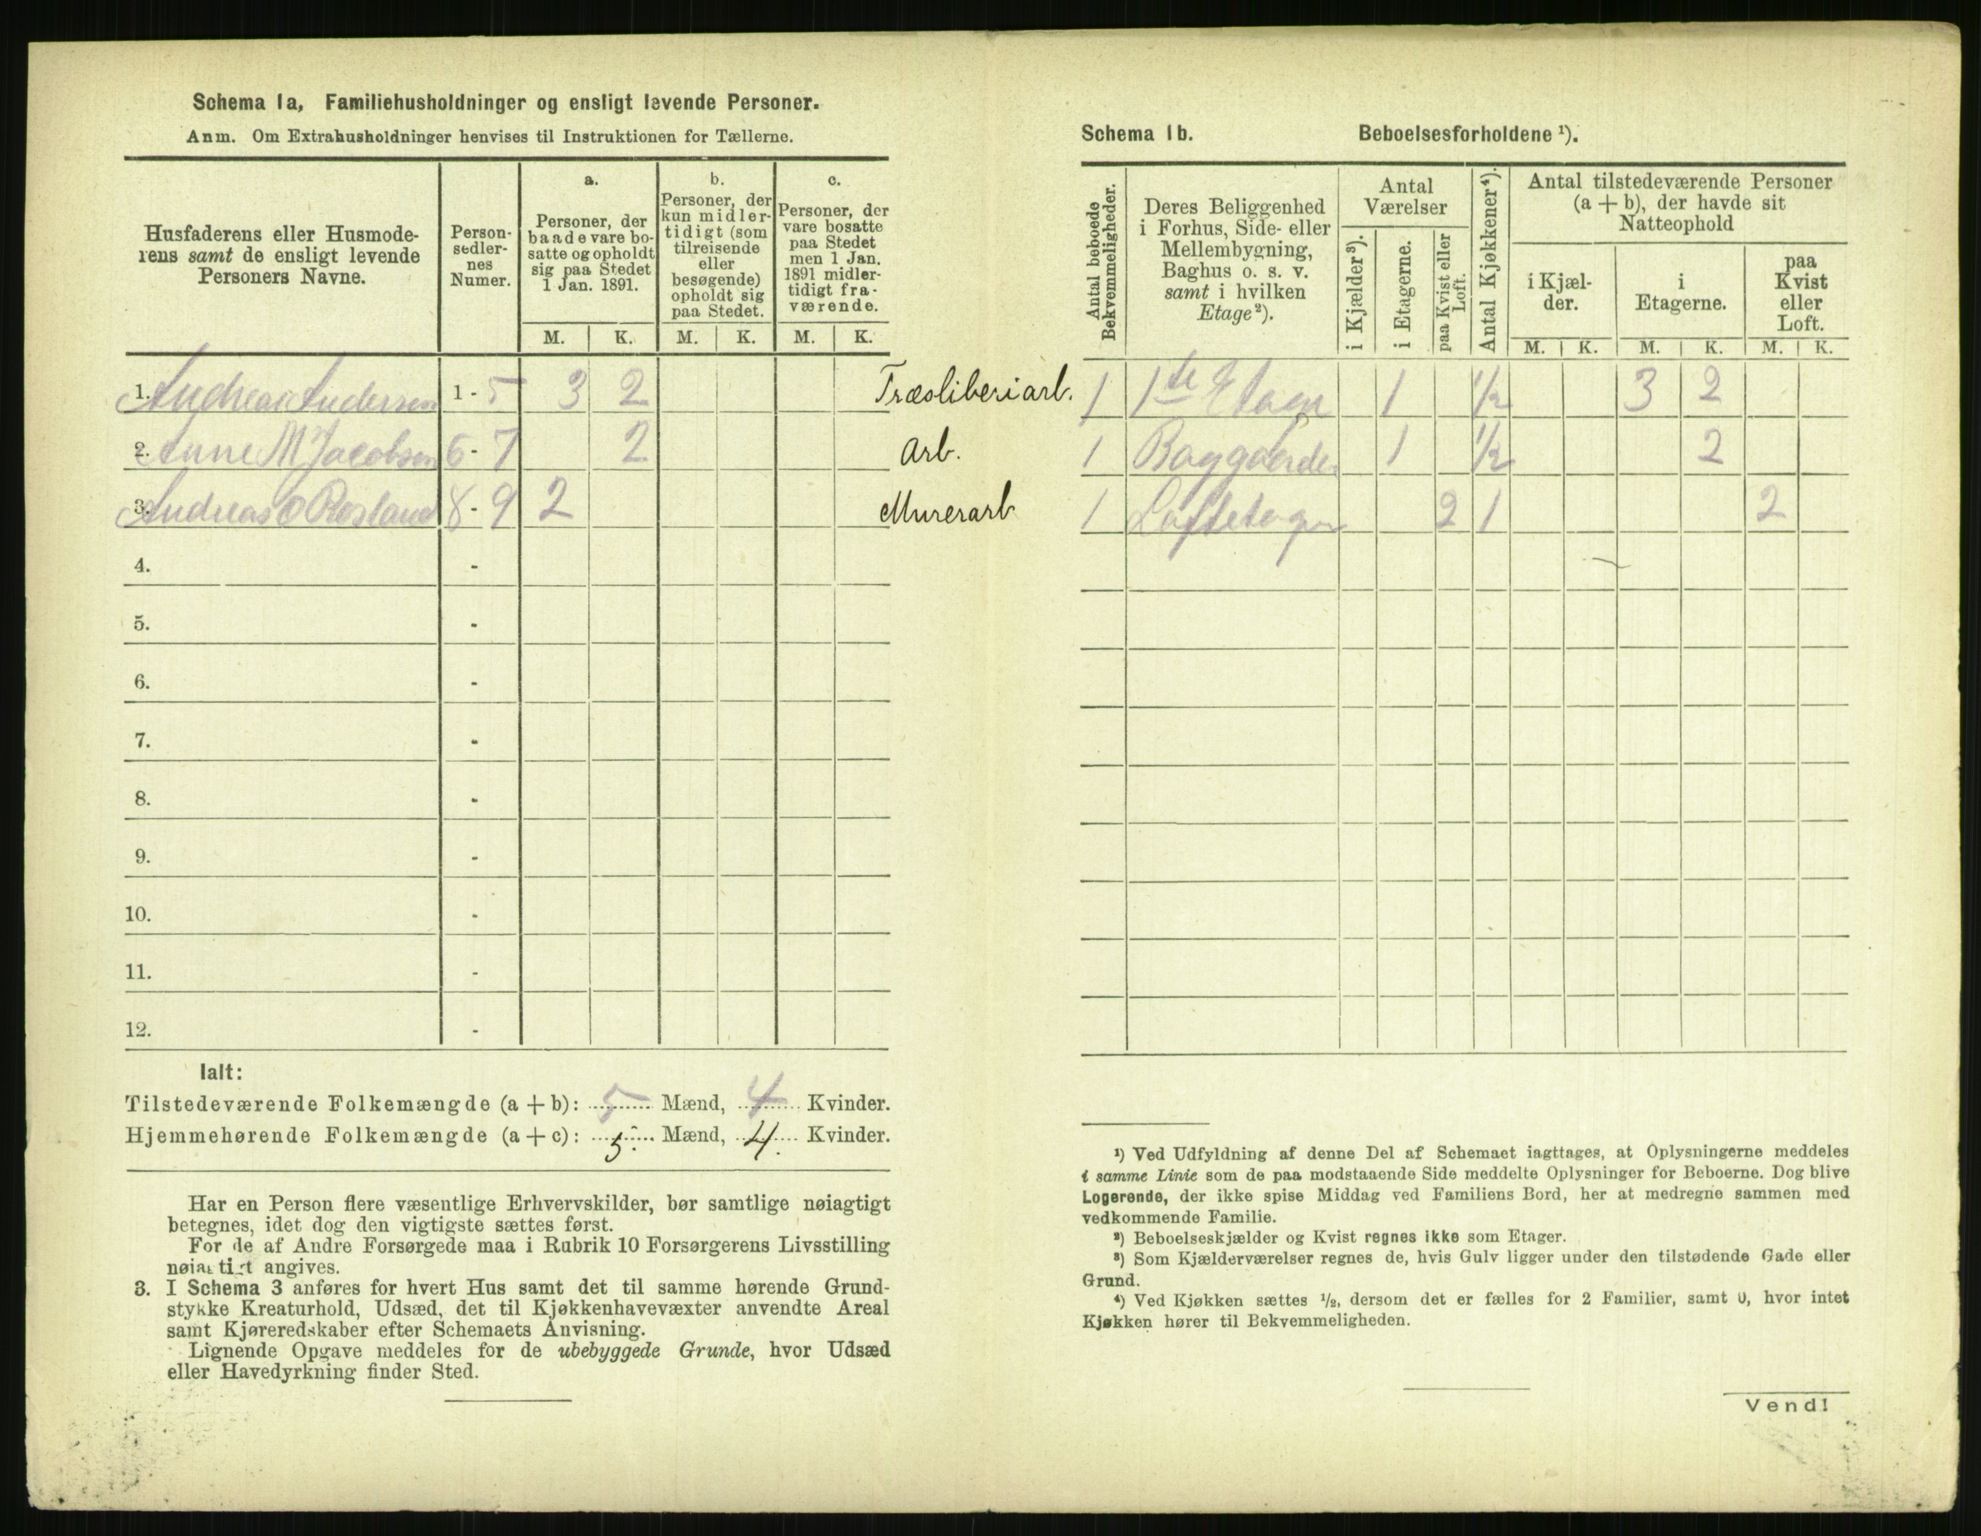 Schema 1a, Familiehusholdninger og ensligt levende Personer.
Anm. Om Extrahusholdninger henvises til Instruktionen for Tællerne.
Husfaderens eller Husmode-
rens samt de ensligt levende
Personers Navne.
Person-
sedler-
nes
Numer.
a.
Personer, der
baade vare bo-
satte og opholdt
sig paa Stedet
1 Jan. 1891.
b.
Personer, der
kun midler-
tidigt (som
tilreisende
eller
besøgende)
opholdt sig
paa Stedet.
c.
Personer, der
vare bosatte
paa Stedet
men 1 Jan.
1891 midler-
tidigt fra-
værende.
M. K. M. K. M. K.
1. Andreas Andersen 1 - 5 3 2 Træsliberiarb.
2. Anne M Jacobsen 6 - 7 2 Arb.
3. Andreas O Rosland 8 - 9 2 Murerarb
4. -
5. -
6. -
7. -
8. -
9. -
10. -
11. -
12. -
Ialt:
Tilstedeværende Folkemængde (a + b): 5 Mænd, 4 Kvinder.
Hjemmehørende Folkemængde (a + c): 5. Mænd, 4. Kvinder.
Har en Person flere væsentlige Erhvervskilder, bør samtlige nøiagtigt
betegnes, idet dog den vigtigste sættes først.
For de af Andre Forsørgede maa i Rubrik 10 Forsørgerens Livsstilling
nøiagtigt angives.
3. I Schema 3 anføres for hvert Hus samt det til samme hørende Grund-
stykke Kreaturhold, Udsæd, det til Kjøkkenhavevæxter anvendte Areal
samt Kjøreredskaber efter Schemaets Anvisning.
Lignende Opgave meddeles for de ubebyggede Grunde, hvor Udsæd
eller Havedyrkning finder Sted.
Schema 1b. Beboelsesforholdene ¹).
Antal beboede
Bekvemmeligheder.
Deres Beliggenhed
i Forhus, Side- eller
Mellembygning,
Baghus o. s. v.
samt i hvilken
Etage²).
Antal
Værelser
i Kjælder³).
i Etagerne.
paa Kvist eller
Loft.
Antal Kjøkkener⁴).
Antal tilstedeværende Personer
(a + b), der havde sit
Natteophold
i Kjæl-
der.
i
Etagerne.
paa
Kvist
eller
Loft.
M. K. M. K. M. K.
1 1te Etage 1 1/2 3 2
1 Baggaarden 1 1/2 2
1 Loftetagen 2 1 2
¹) Ved Udfyldning af denne Del af Schemaet iagttages, at Oplysningerne meddeles
i samme Linie som de paa modstaaende Side meddelte Oplysninger for Beboerne. Dog blive
Logerende, der ikke spise Middag ved Familiens Bord, her at medregne sammen med
vedkommende Familie.
²) Beboelseskjælder og Kvist regnes ikke som Etager.
³) Som Kjælderværelser regnes de, hvis Gulv ligger under den tilstødende Gade eller
Grund.
⁴) Ved Kjøkken sættes ½, dersom det er fælles for 2 Familier, samt 0, hvor intet
Kjøkken hører til Bekvemmeligheden.
Vend!